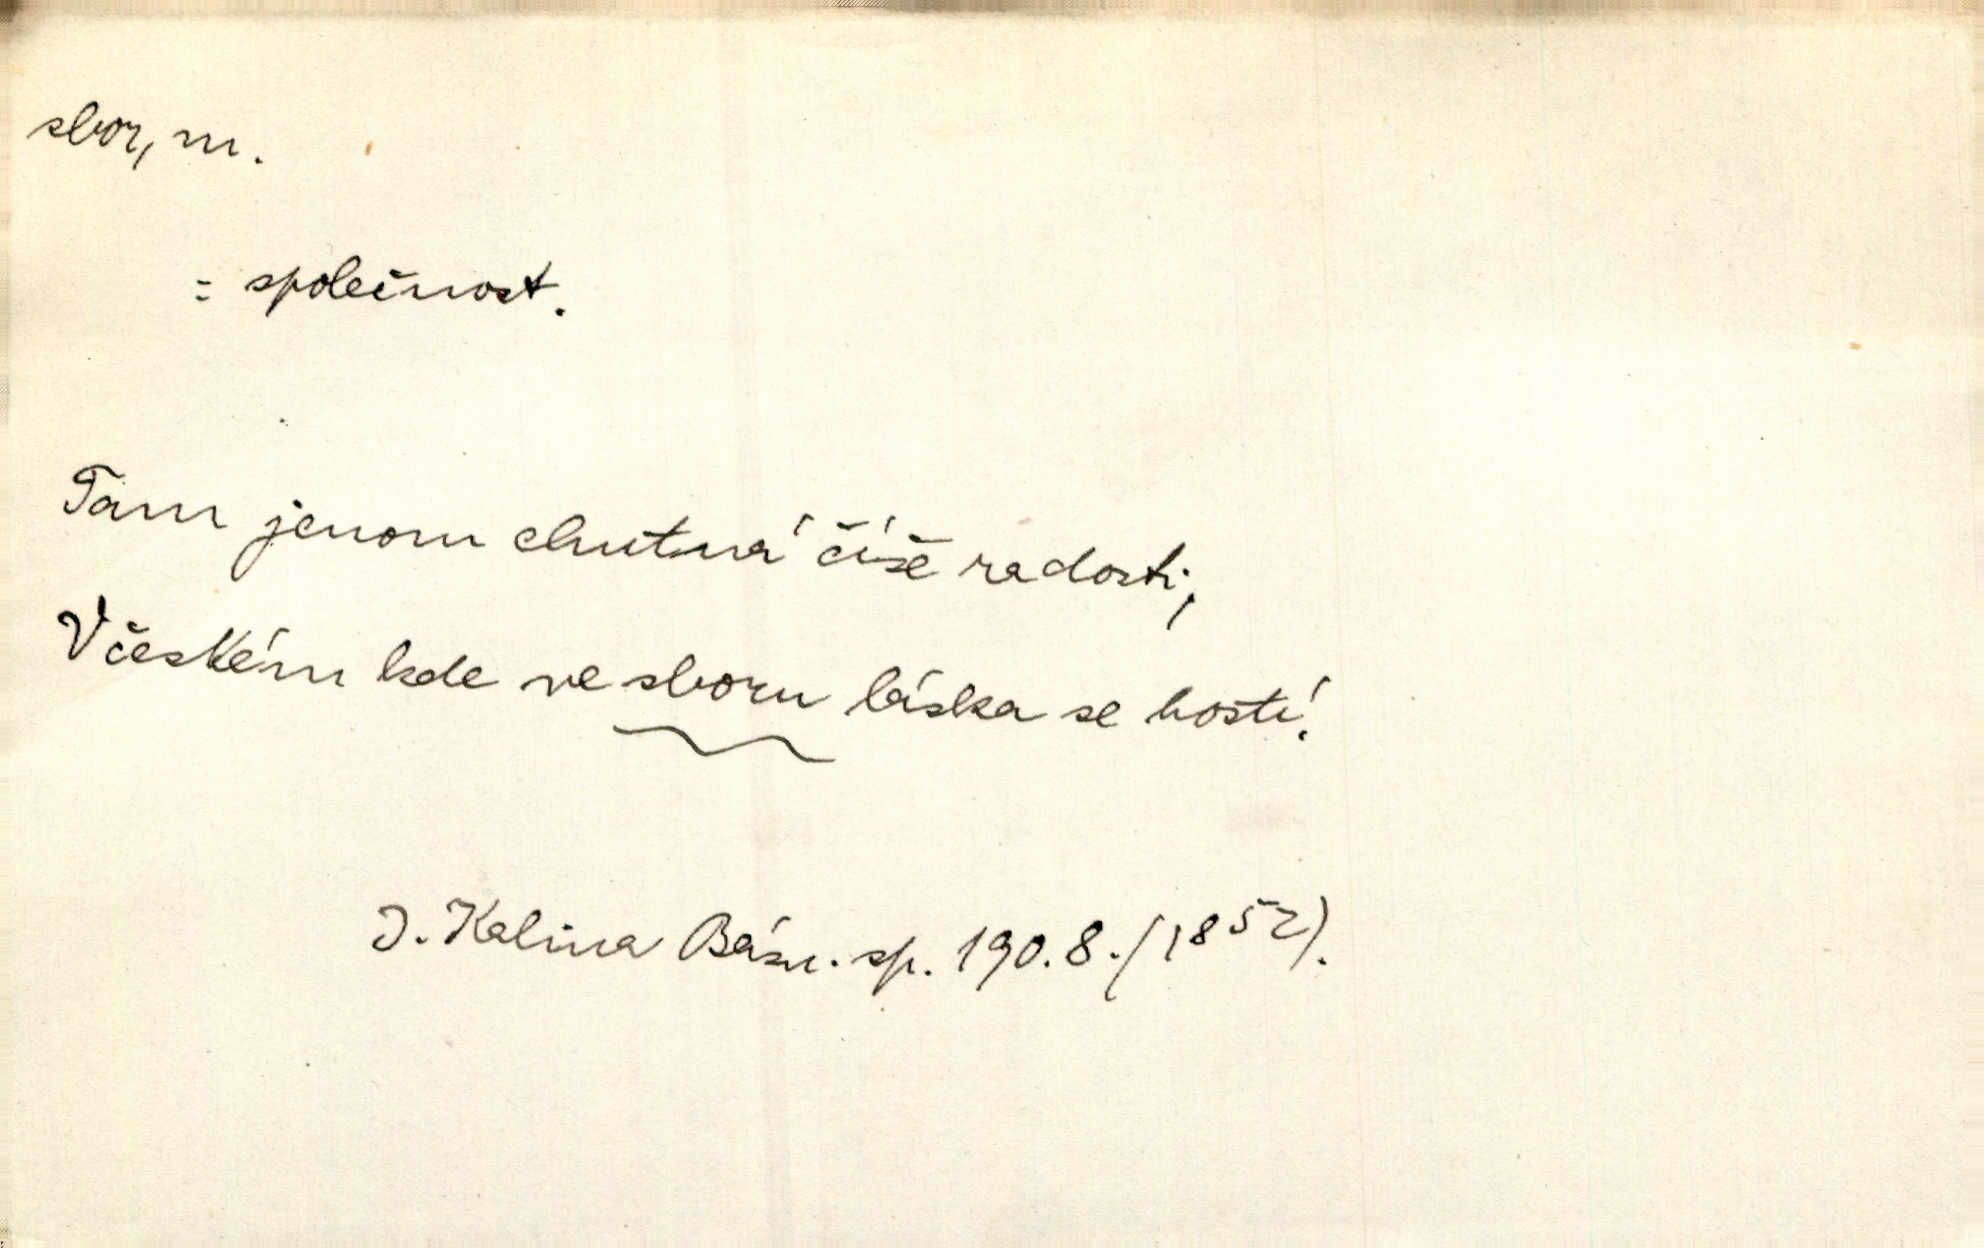 sbor, m.
= společnost.
Tam jenom chutná číše radosti,
V českém kde ve sboru láska se hostí.
J. Kalina Básn. sp. 190. 8. (1852).